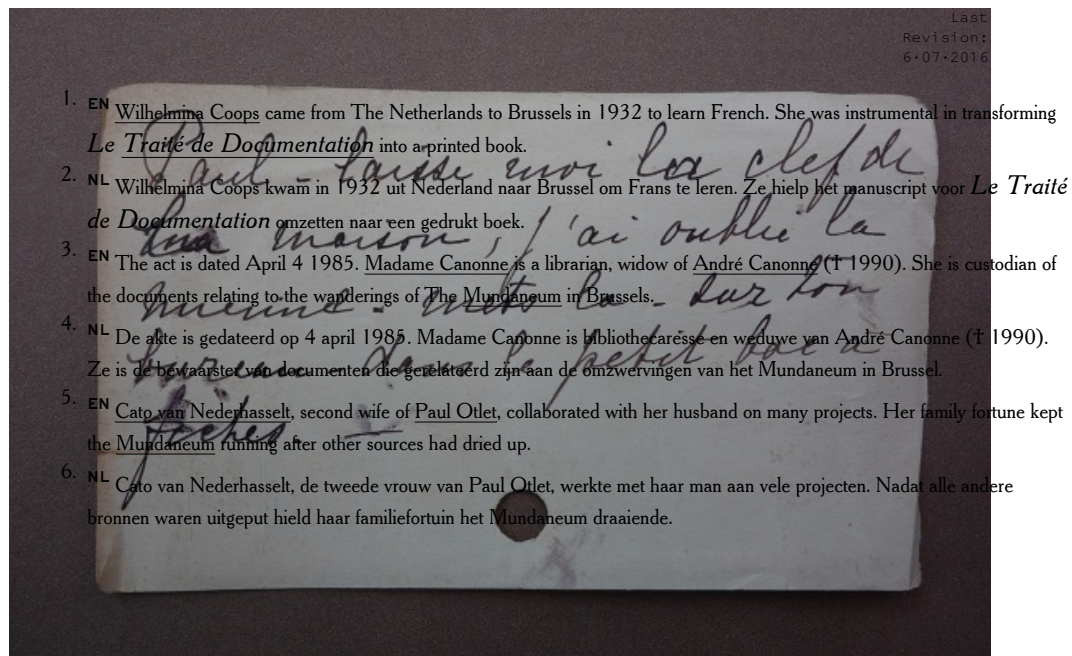 Last
Revision:
6·07·2016
1. EN Wilhelmina Coops came from The Netherlands to Brussels in 1932 to learn French. She was instrumental in transforming
Le Traité de Documentation into a printed book.
2. NL Wilhelmina Coops kwam in 1932 uit Nederland naar Brussel om Frans te leren. Ze hielp het manuscript voor Le Traité
de Documentation omzetten naar een gedrukt boek.
3. EN The act is dated April 4 1985. Madame Canonne is a librarian, widow of André Canonne († 1990). She is custodian of
the documents relating to the wanderings of The Mundaneum in Brussels.
4. NL De akte is gedateerd op 4 april 1985. Madame Canonne is bibliothecaresse en weduwe van André Canonne († 1990).
Ze is de bewaarster van documenten die gerelateerd zijn aan de omzwervingen van het Mundaneum in Brussel.
5. EN Cato van Nederhasselt, second wife of Paul Otlet, collaborated with her husband on many projects. Her family fortune kept
the Mundaneum running after other sources had dried up.
6. NL Cato van Nederhasselt, de tweede vrouw van Paul Otlet, werkte met haar man aan vele projecten. Nadat alle andere
bronnen waren uitgeput hield haar familiefortuin het Mundaneum draaiende.
Paul - laisse moi la clef de
maison, j'ai oublié la
mienne - mets la - sur ton
bureau - dans le petit bac à
fiches. —